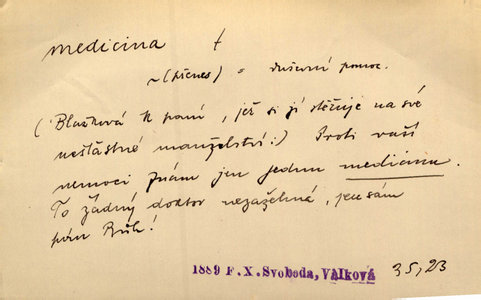 medicina †
~ (přenes) = duševní pomoc.
(Blažková k paní, jež si jí stěžuje na své
nešťastné manželství:) Proti vaší
nemoci znám jen jednu medicinu.
To žádný doktor nezažehná, jen sám
pán Bůh!
1889 F. X. Svoboda, Válková 35, 23